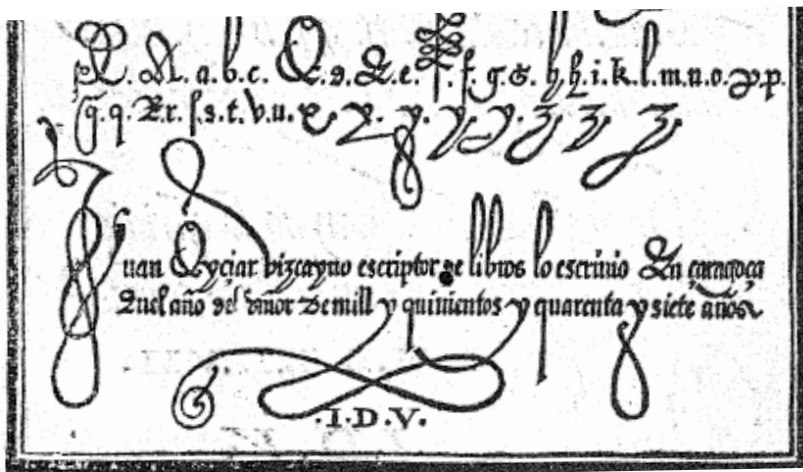 A. A. a. b. c. D. d. E. e. F. f. g. G. h. h. i. k. l. m. n. o. p.
q. q. R. r. s. s. t. v. u. x. y. y. y. y. z. z. z.
Juan Dyciar vizcayno escriptor de libros lo escrivio En çaragoça
Enel año del señor De mill y quinientos y quarenta y siete años
.I.D.V.